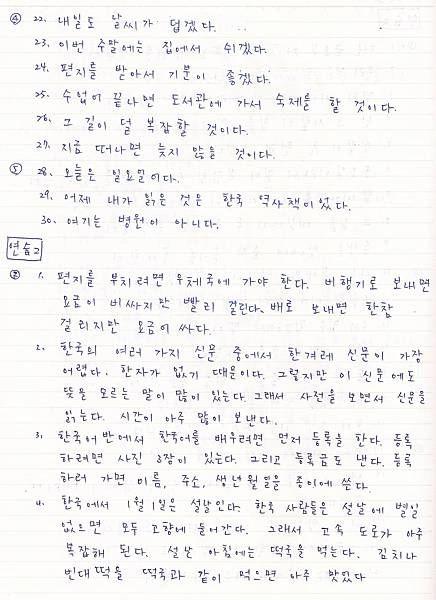 ④ 22. 내일도 날씨가 덥겠다.
23. 이번 주말에는 집에서 쉬겠다.
24. 편지를 받아서 기분이 좋겠다.
25. 수업이 끝나면 도서관에 가서 숙제를 할 것이다.
26. 그 길이 덜 복잡할 것이다.
27. 지금 떠나면 늦지 않을 것이다.
⑤ 28. 오늘은 일요일이다.
29. 어제 내가 읽은 것은 한국 역사책이었다.
30. 여기는 병원이 아니다.
연습2
1. 편지를 부치려면 우체국에 가야 한다. 비행기로 보내면
요금이 비싸지만 빨리 걸린다. 배로 보내면 한참
걸리지만 요금이 싸다.
2. 한국의 여러 가지 신문 중에서 한겨레 신문이 가장
어렵다. 한자가 없기 때문이다. 그렇지만 이 신문에도
뜻을 모르는 말이 많이 있는다. 그래서 사전을 보면서 신문을
읽는다. 시간이 아주 많이 보낸다.
3. 한국어반에서 한국어를 배우려면 먼저 등록을 한다. 등록
하려면 사진 3장이 있는다. 그리고 등록금도 낸다. 등록
하러 가면 이름, 주소, 생년월일을 종이에 쓴다.
4. 한국에서 1월 1일은 설날인다. 한국 사람들은 설날에 별일
없으면 모두 고향에 들어간다. 그래서 고속 도로가 아주
복잡해 된다. 설날 아침에는 떡국을 먹는다. 김치나
빈대떡을 떡국과 같이 먹으면 아주 맛있다